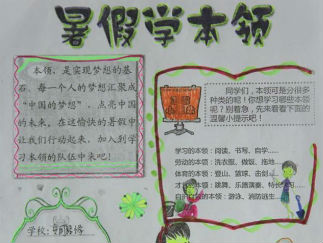 暑假学本领
本领，是实现梦想的基
石，每一个人的梦想汇聚成
“中国的梦想”，点亮中国
的未来，在这愉快的暑假中
让我们行动起来，加入到学
习本领的队伍中来吧！
同学们，本领可是分很多
种类的呢！你想学习是些本领
呢？别着急，先来看看下面的
温馨小提示吧！
学习的本领：阅读、书写、自学……
劳动的本领：洗衣服、做饭、拖地……
体育的本领：登山、篮球、击剑……
才艺的本领：跳舞、乐器演奏、特长
的本领：游泳、消防逃生……
学校：